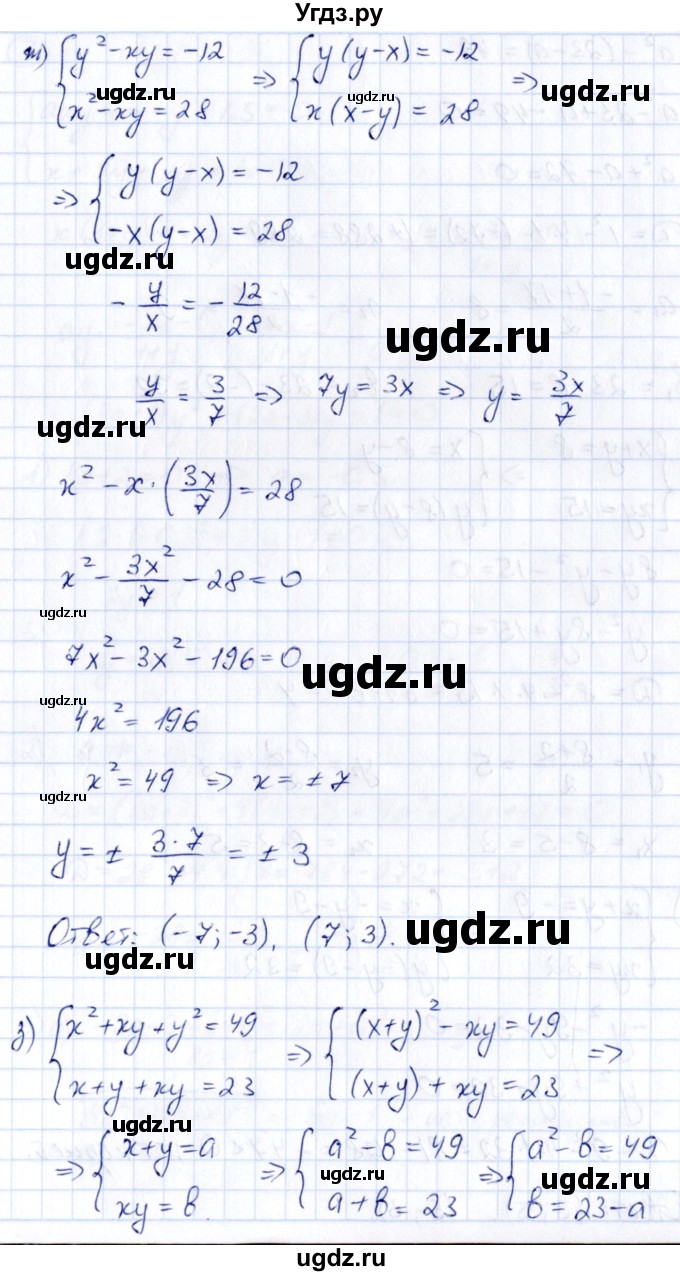 Угдз.ру
ж) { y² - xy = -12 ⇒ { y(y-x) = -12 ⇒
{ x² - xy = 28 { x(x-y) = 28
ugdz.ru ugdz.ru ugdz.ru
⇒ { y(y-x) = -12
{ -x(y-x) = 28
ugdz.ru
- y/x = - 12/28
ugdz.ru
y/x = 3/7 ⇒ 7y = 3x ⇒ y = 3x/7
ugdz.ru
x² - x · (3x/7) = 28
x² - 3x²/7 - 28 = 0
ugdz.ru
7x² - 3x² - 196 = 0
ugdz.ru
4x² = 196
ugdz.ru
x² = 49 ⇒ x = ± 7
ugdz.ru
y = ± 3·7/7 = ± 3
Ответ: (-7; -3), (7; 3).
ugdz.ru
ugdz.ru
з) { x² + xy + y² = 49 ⇒ { (x+y)² - xy = 49 ⇒
{ x + y + xy = 23 { (x+y) + xy = 23
ugdz.ru
⇒ { x+y = a ⇒ { a² - в = 49 ⇒ { a² - в = 49
{ xy = в. { a + в = 23 { в = 23 - a
ugdz.ru ugdz.ru
ugdz.ru